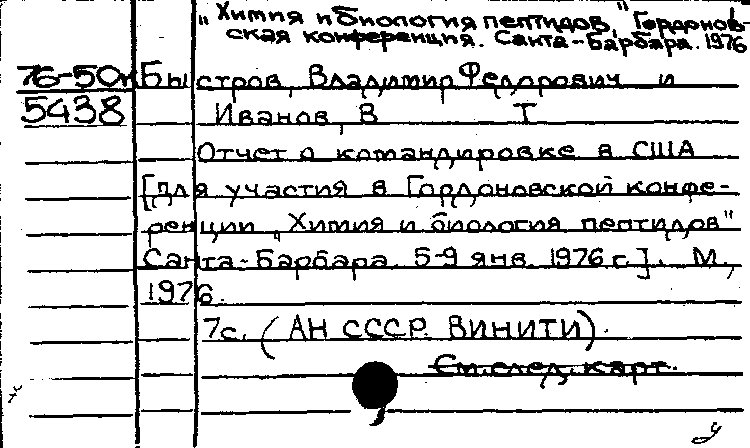 „Химия и биология пептидов," Гордонов-
ская конференция. Санта-Барбара. 1976
76-50п Быстров, Владимир Федорович и
5438 Иванов, В Т
Отчет о командировке в США
[для участия в Гордоновской конфе-
ренции „Химия и биология пептидов"
Санта-Барбара 5-9 янв. 1976 г.]. М.,
1976.
7с. (АН СССР. ВИНИТИ).
См. след. карт.